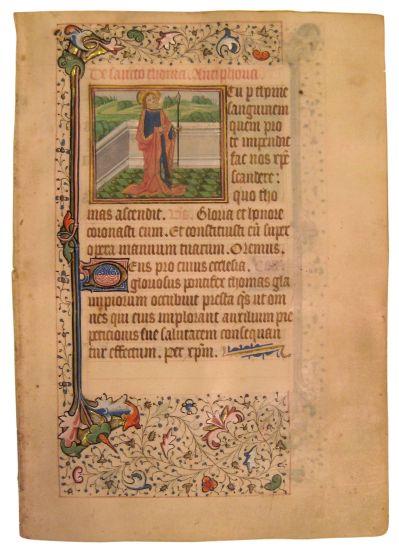 De sancto thoma. Antiphona.
Tu p thome
sanguinem
quem pro
te impendit
fac nos xpe
scandere:
quo tho
mas ascendit. Vs. Gloria et honore
coronasti eum. Et constituisti eu super
opera manuum tuarum. Oremus.
Deus pro cuius ecclesia
gloriosus pontifex thomas gla
impiorum occubuit presta qs ut om
nes qui eius implorant auxilium pie
peticionis sue salutarem consequan
tur effectum. Per xpm.